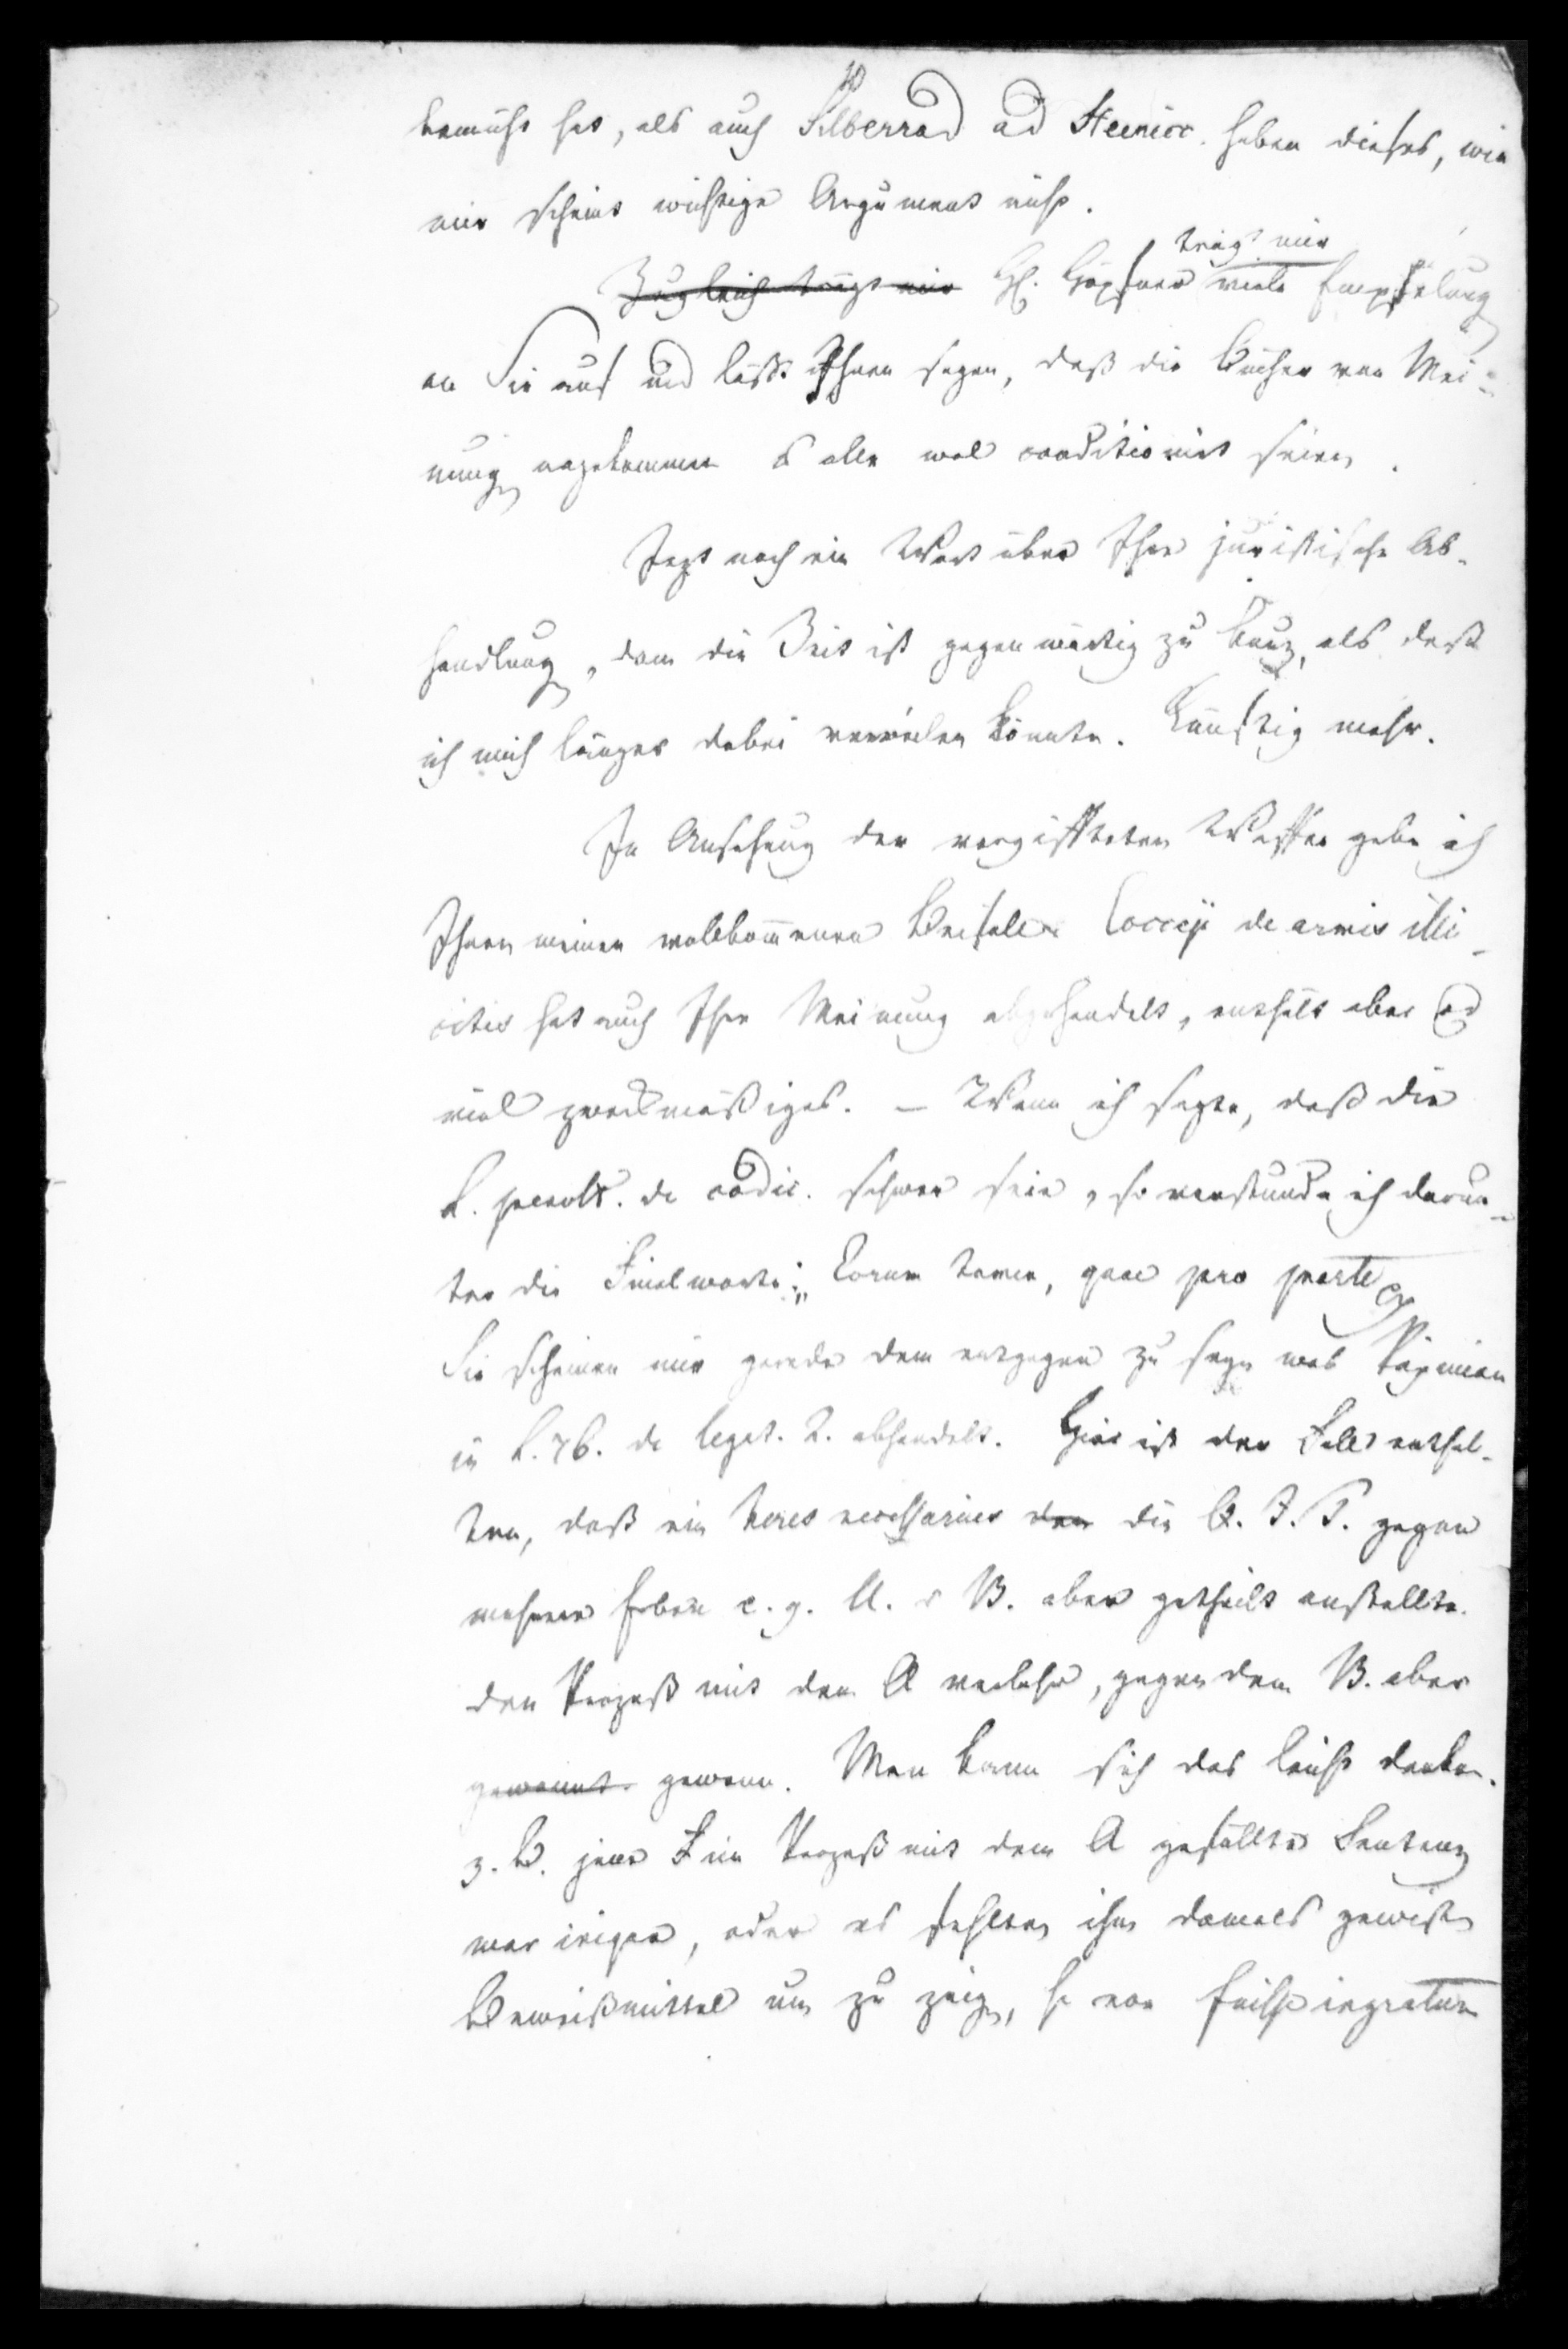 bemüht hat, als auch Silberrad ad Heinecc. haben dieses, wie
mir scheint wichtige Argument nicht.
trägt mir
Zugleich trägt mir H. Höpfner viele Empfelung
an Sie auf und läßt Ihnen sagen, daß die Bücher von Mei-
nung angekommen & alle wol conditionirt seien.
Jezt noch ein Wort über Ihre juristische Ab-
handlung, denn die Zeit ist gegenwärtig zu kurz, als daß
ich mich länger dabei verweilen könnte. Künftig mehr.
In Ansehung der vergiffteten Waffen gebe ich
Ihnen meinen vollkommenen Beifall. Cocceji de armis illi-
citis hat auch Ihre Meinung abgehandelt, enthält aber
viel zweckmäßiges. – Wenn ich sagte, daß die
L. penult. de codic. schwer sein, so verstunde ich darun-
ter die Finalworte: „Eorum tamen, quae pro parte
Sie scheinen mir gerade dem entgegen zu sagen was Papinian
in L. 76. de legat. 2. abhandelt. Hier ist der Fall enthal-
ten, daß ein heres necessarius den die Q. I. T. gegen
mehrere Erben e. g. A. & B. aber getheilt anstellte.
den Prozeß mit dem A verlohr, gegen den B. aber
gewonnt gewann. Man kann sich das leicht denken.
z. B. jene im Prozeß mit dem A gefällte Sentenz
war, oder es fehlten ihm damals gewiße
Beweißmittel um zu zeigen,